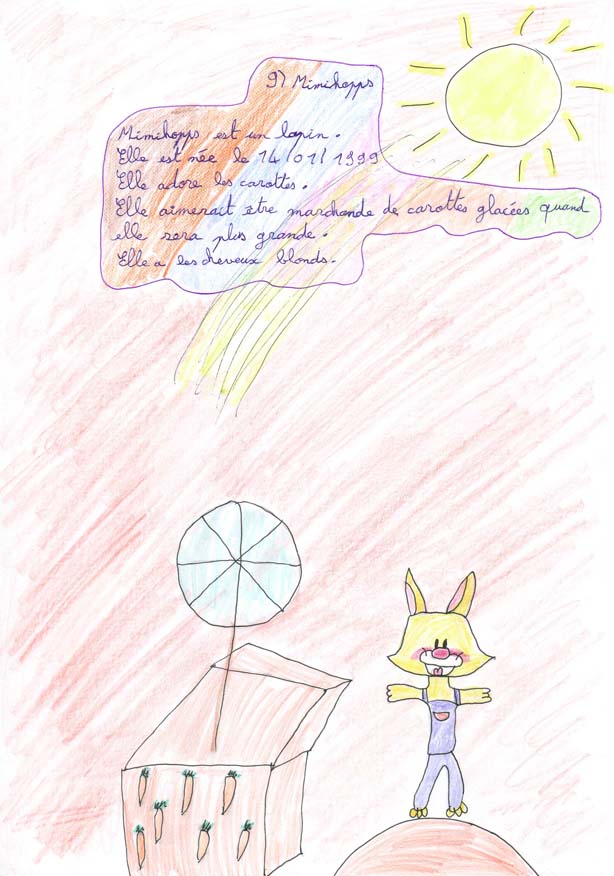 9) Mimihopps
Mimihopps est un lapin.
Elle est née le 14/01/1999
Elle adore les carottes.
Elle aimerait etre marchande de carottes glacées quand
elle sera plus grande.
Elle a les cheveux blonds.